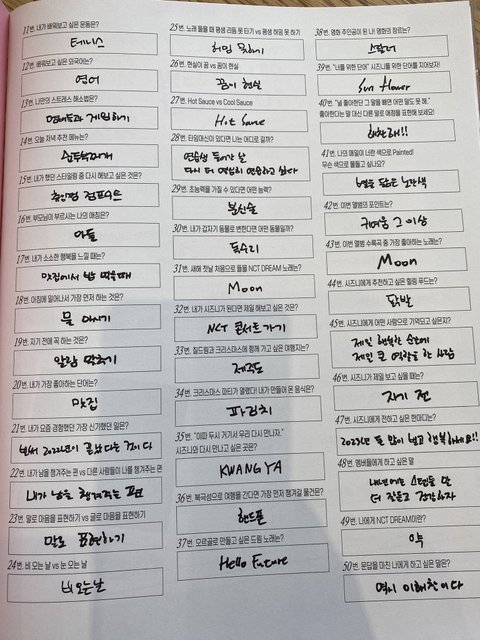 11번. 내가 배워보고 싶은 운동은?
테니스
12번. 배워보고 싶은 외국어는?
영어
13번. 나만의 스트레스 해소법은?
멤버들과 게임하기
14번. 오늘 저녁 추천 메뉴는?
순두부찌개
15번. 내가 했던 스타일링 중 다시 해보고 싶은 것은?
츄잉껌 점프수트
16번. 부모님이 부르시는 나의 애칭은?
아들
17번. 내가 소소한 행복을 느낄 때는?
맛집에서 밥 먹을때
18번. 아침에 일어나서 가장 먼저 하는 것은?
물 마시기
19번. 자기 전에 꼭 하는 것은?
알람 맞추기
20번. 내가 가장 좋아하는 단어는?
맛집
21번. 내가 요즘 경험했던 가장 신기했던 일은?
벌써 2022년이 끝났다는 것이다
22번. 내가 남을 챙겨주는 편 vs 다른 사람들이 나를 챙겨주는 편
내가 남을 챙겨주는 편
23번. 말로 마음을 표현하기 vs 글로 마음을 표현하기
말로 표현하기
24번. 비 오는 날 vs 눈 오는 날
비 오는날
25번. 노래 들을 때 평생 리듬 못 타기 vs 평생 허밍 못 하기
허밍 못하기
26번. 현실이 꿈 vs 꿈이 현실
꿈이 현실
27번. Hot Sauce vs Cool Sauce
Hot Sauce
28번. 타임머신이 있다면 나는 어디로 갈까?
연습생 들어간 날
다시 더 열심히 연습하고 싶다
29번. 초능력을 가질 수 있다면 어떤 능력?
분신술
30번. 내가 갑자기 동물로 변한다면 어떤 동물일까?
독수리
31번. 새해 첫날 처음으로 들을 NCT DREAM 노래는?
Moon
32번. 내가 시즈니가 된다면 제일 해보고 싶은 것은?
NCT 콘서트 가기
33번. 칠드림과 크리스마스에 함께 가고 싶은 여행지는?
제주도
34번. 크리스마스 파티가 열렸다! 내가 만들어 온 음식은?
파김치
35번. "이따 두시 거기서 우리 다시 만나자."
시즈니와 다시 만나고 싶은 곳은?
KWANGYA
36번. 북극성으로 여행을 간다면 가장 먼저 챙겨갈 물건은?
핸드폰
37번. 오르골로 만들고 싶은 드림 노래는?
Hello Future
38번. 영화 주인공이 된 나! 영화의 장르는?
스릴러
39번. "너를 위한 단어" 시즈니를 위한 단어를 지어보자!
Sun flower
40번. "널 좋아한단 그 말을 빼면 어떤 말도 못 해."
좋아한다는 말 대신 다른 말로 애정을 표현해 보세요!
41번. 나의 매일이 너란 색으로 Painted!
무슨 색으로 물들고 싶나요?
별을 닮은 노란색
42번. 이번 앨범의 포인트는?
귀여움 그 이상
43번. 이번 앨범 수록곡 중 가장 좋아하는 노래는?
Moon
44번. 시즈니에게 추천하고 싶은 힐링 푸드는?
닭발
45번. 시즈니에게 어떤 사람으로 기억되고 싶은지?
제일 행복한 순간에
제일 큰 역할을 한 사람
46번. 시즈니가 제일 보고 싶을 때는?
자기 전
47번. 시즈니에게 전하고 싶은 한마디는?
2023년 돈 많이 벌고 행복하세요!!
48번. 멤버들에게 하고 싶은 말
내년에는 스텝을 한
더 잘듣고 건강하자
49번. 나에게 NCT DREAM이란?
약
50번. 문답을 마친 나에게 하고 싶은 말은?
역시 이해찬이다